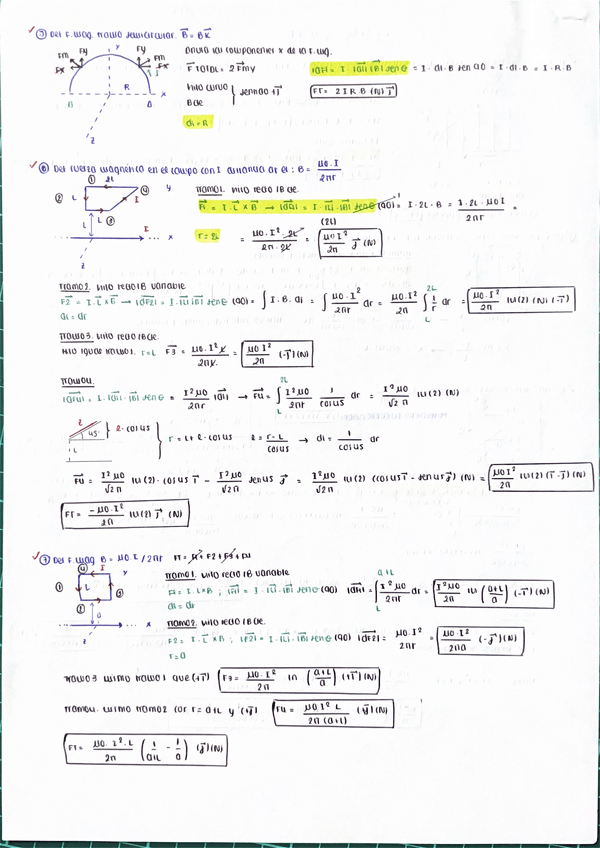 ✓⑦ Def F. mag. tramo semicircular. B⃗ = BK⃗
Anula las componentes x de la F. mag.
Fm Fy y Fy Fm
Fx Fx
R x
z
F⃗ TOTAL = 2 Fmy
|dF| = I · |dl| |B| sen θ = I · dl · B sen 90 = I · dl · B = I · R · B
Hilo curvo
B cte
FT = 2 I R B (N) J⃗
dl = R
B = μ0 · I / 2πr
① 2L ④ y
② L I
L ③
I x
z
Tramo 1. Hilo recto / B cte.
F⃗1 = I · L⃗ × B⃗ → |dF1| = I · |L| · |B| sen θ (90) = I · 2L · B = I · 2L · μ0 I / 2πr =
(2L)
r = 2L = μ0 · I² · 2L / 2π · 2L = μ0 I² / 2π j⃗ (N)
Tramo 2. Hilo recto / B variable
F⃗2 = I · L⃗ × B⃗ → |dF2| = I · |L| |B| sen θ (90) = ∫ I · B · dl = ∫ μ0 · I² / 2πr dr = μ0 · I² / 2π ∫ L 2L 1/r dr = μ0 · I² / 2π ln(2) (N) (-i⃗)
dl = dr
Tramo 3. Hilo recto / B cte.
r = L F⃗3 = μ0 · I² L / 2πL = μ0 I² / 2π (-j⃗) (N)
Tramo 4.
|dF4| = I · |dl| · |B| sen θ = I² μ0 / 2πr |dl| → F⃗4 = ∫ L 2L I² μ0 / 2πr 1 / cos 45 dr = I² μ0 / √2 π ln(2) (N)
l 45° } l · cos 45
L
r = L + l · cos 45 l = r - L / cos 45 → dl = 1 / cos 45 dr
F⃗4 = I² μ0 / √2 π ln(2) · cos 45 i⃗ - I² μ0 / √2 π sen 45 j⃗ = I² μ0 / √2 π ln(2) (cos 45 i⃗ - sen 45 j⃗) (N) = μ0 I² / 2π ln(2) (i⃗ - j⃗) (N)
FT = -μ0 · I² / 2π ln(2) j⃗ (N)
✓⑦ Def F. mag B = μ0 · I / 2πr FT = F1 + F2 + F3 + F4
④ I
① L ③
②
a
x
z
Tramo 1. Hilo recto / B variable
F1 = I · L × B ; |F1| = I · |L| · |B| sen θ (90) |dF1| = ∫ L a+L I² μ0 / 2πr dr = I² μ0 / 2π ln (a+L / a) (-i⃗) (N)
dl = dr
Tramo 2. Hilo recto / B cte.
F2 = I · L⃗ × B ; |F2| = I · |L| · |B| sen θ (90) |dF2| = μ0 · I² / 2πr = μ0 · I² / 2πa (-j⃗) (N)
r = a
Tramo 3 mismo tramo 1 que (+i⃗) F3 = μ0 · I² / 2π ln (a+L / a) (+i⃗) (N)
Tramo 4. mismo tramo 2 con r = a+L y (+j⃗) F4 = μ0 I² L / 2π (a+L) (j⃗) (N)
FT = μ0 · I² · L / 2π (1 / a+L - 1 / a) (j⃗) (N)